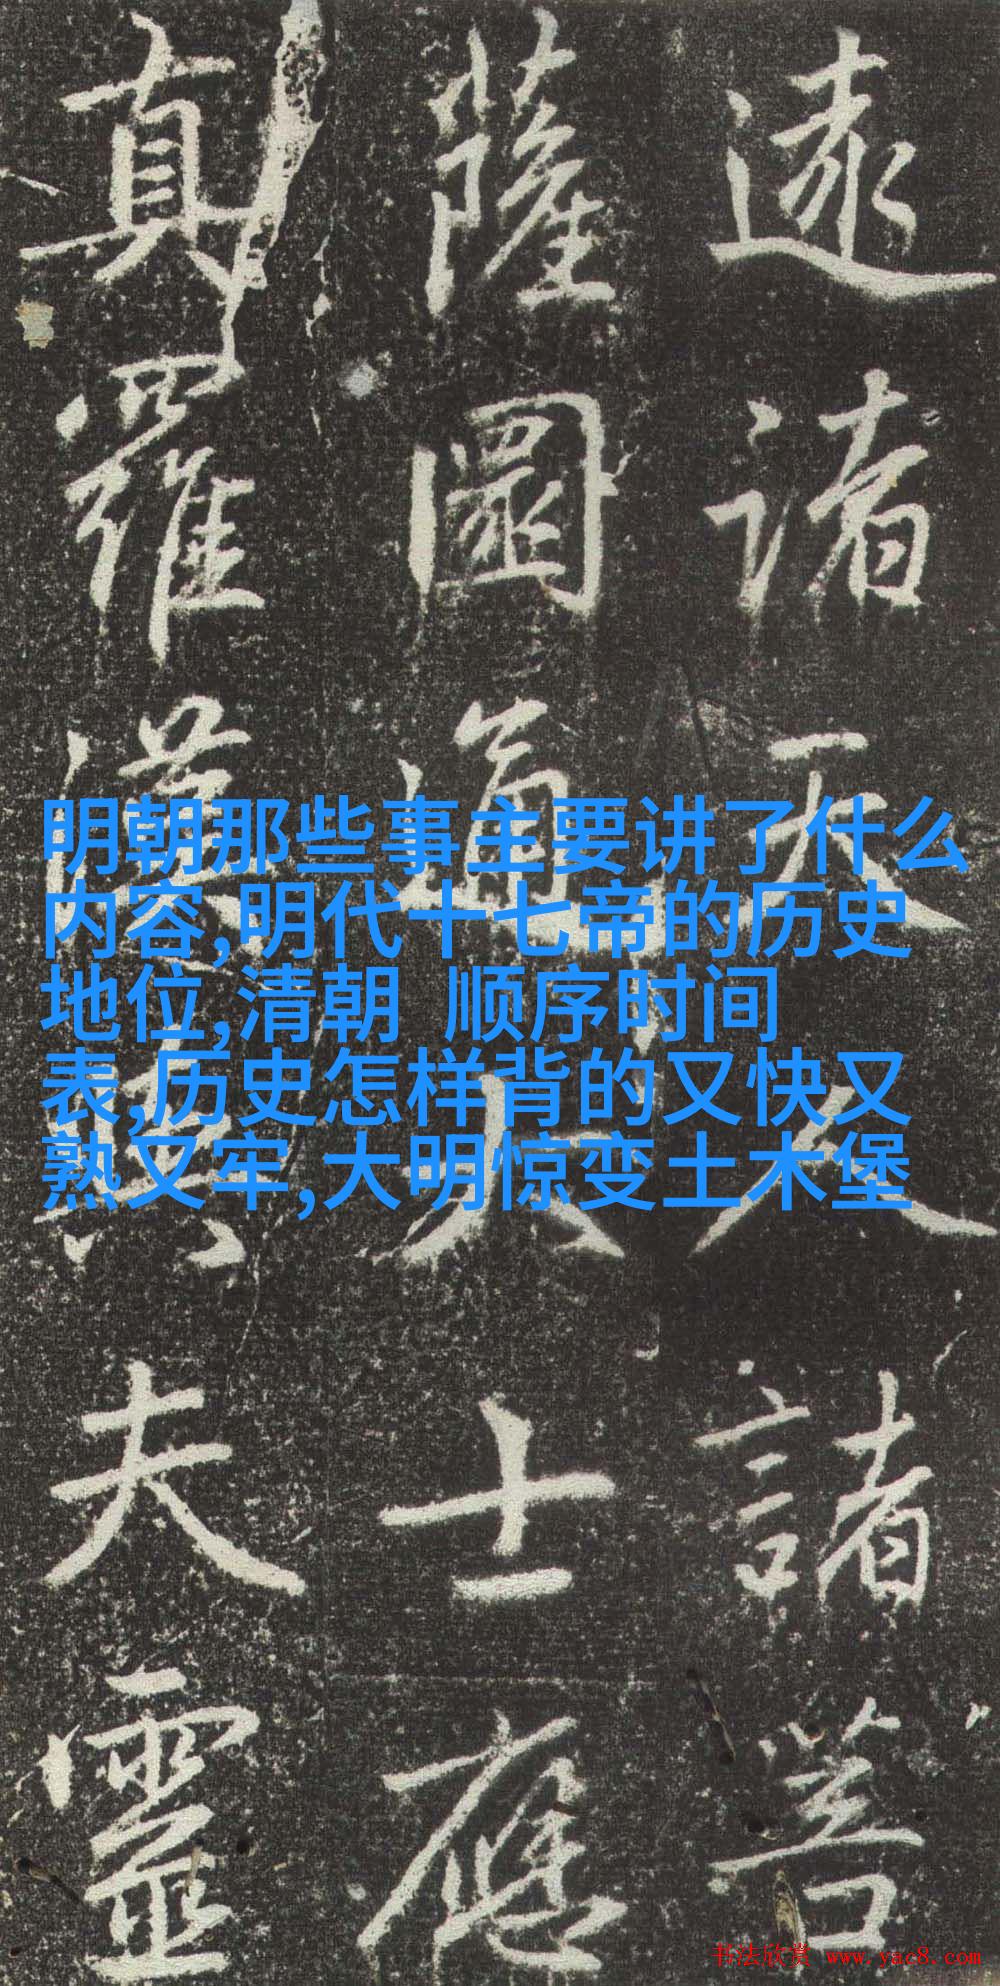 逮諸天人諸菩
薩圓通大士應
真羅漢與夫靈
明朝那些事主要讲了什么
内容,明代十七帝的历史
地位,清朝 顺序时间
表,历史怎样背的又快又
熟又牢,大明惊变土木堡
书法欣赏 www.yac8.com